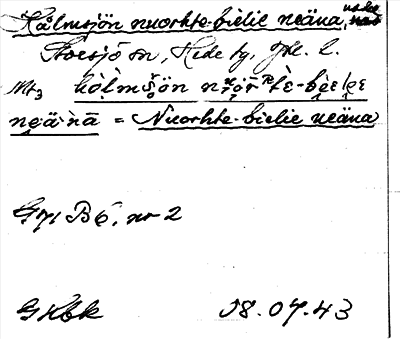 Kålmsjön nuorhte-bielie neäna, uske näs
Storsjö sn, Hede tg, Jtl. l.
Mt3 kòlmsön nuorte-bielè
neänā = Nuorhte-bielie neäna
G 171 B 6, nr 2
G Kbk 08.07.43